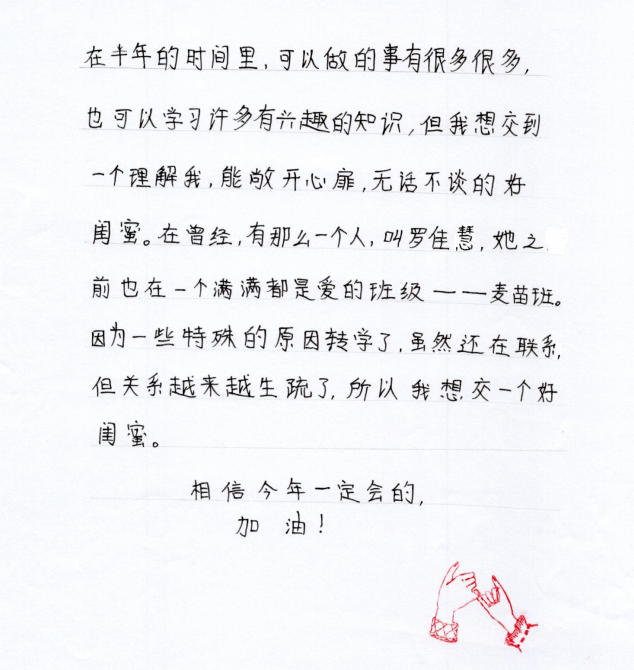 在半年的时间里,可以做的事有很多很多,
也可以学习许多有兴趣的知识,但我想交到
一个理解我,能敞开心扉,无话不谈的好
闺蜜。在曾经,有那么一个人,叫罗佳慧,她之
前也在一个满满都是爱的班级——麦苗班。
因为一些特殊的原因转学了,虽然还在联系,
但关系越来越生疏了,所以我想交一个好
闺蜜。
相信今年一定会的,
加油!